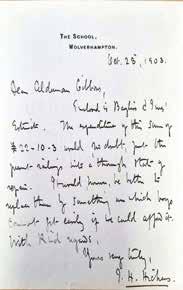 THE SCHOOL,
WOLVERHAMPTON.
Oct. 28th, 1903.
Dear Alderman Gibbons,
Enclosed is Bayliss & Jones'
Estimate. The expenditure of the sum of
£22-10-3 would no doubt, put the
present railings into a thorough state of
repair. It would, however, be better to
replace them by something on which boys
cannot get easily if we could afford it.
With kind regards,
Yours very truly,
J. H. Hichens.